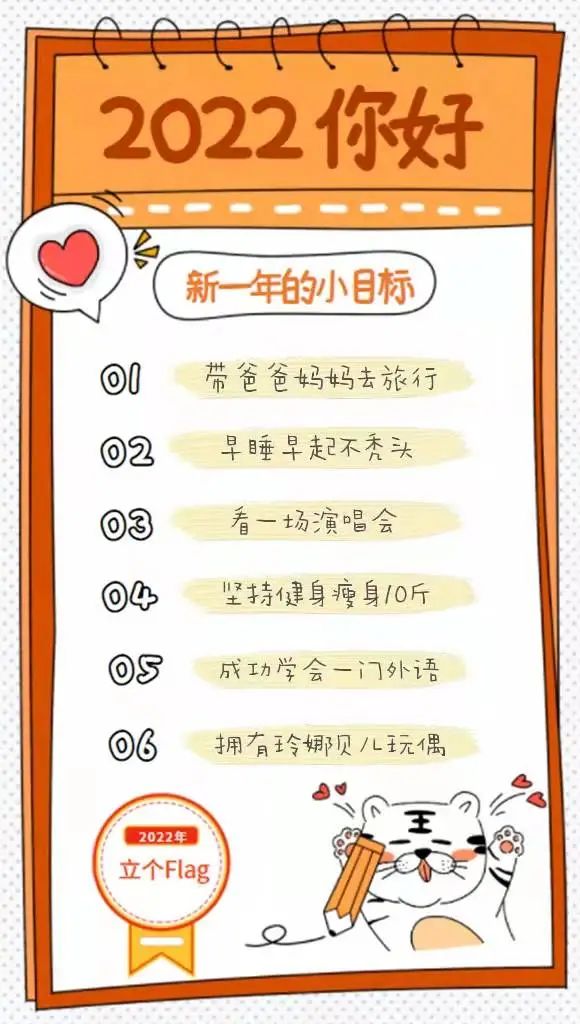 2022 你好
新一年的小目标
01 带爸爸妈妈去旅行
02 早睡早起不秃头
03 看一场演唱会
04 坚持健身瘦身10斤
05 成功学会一门外语
06 拥有玲娜贝儿玩偶
2022年
立个Flag
王